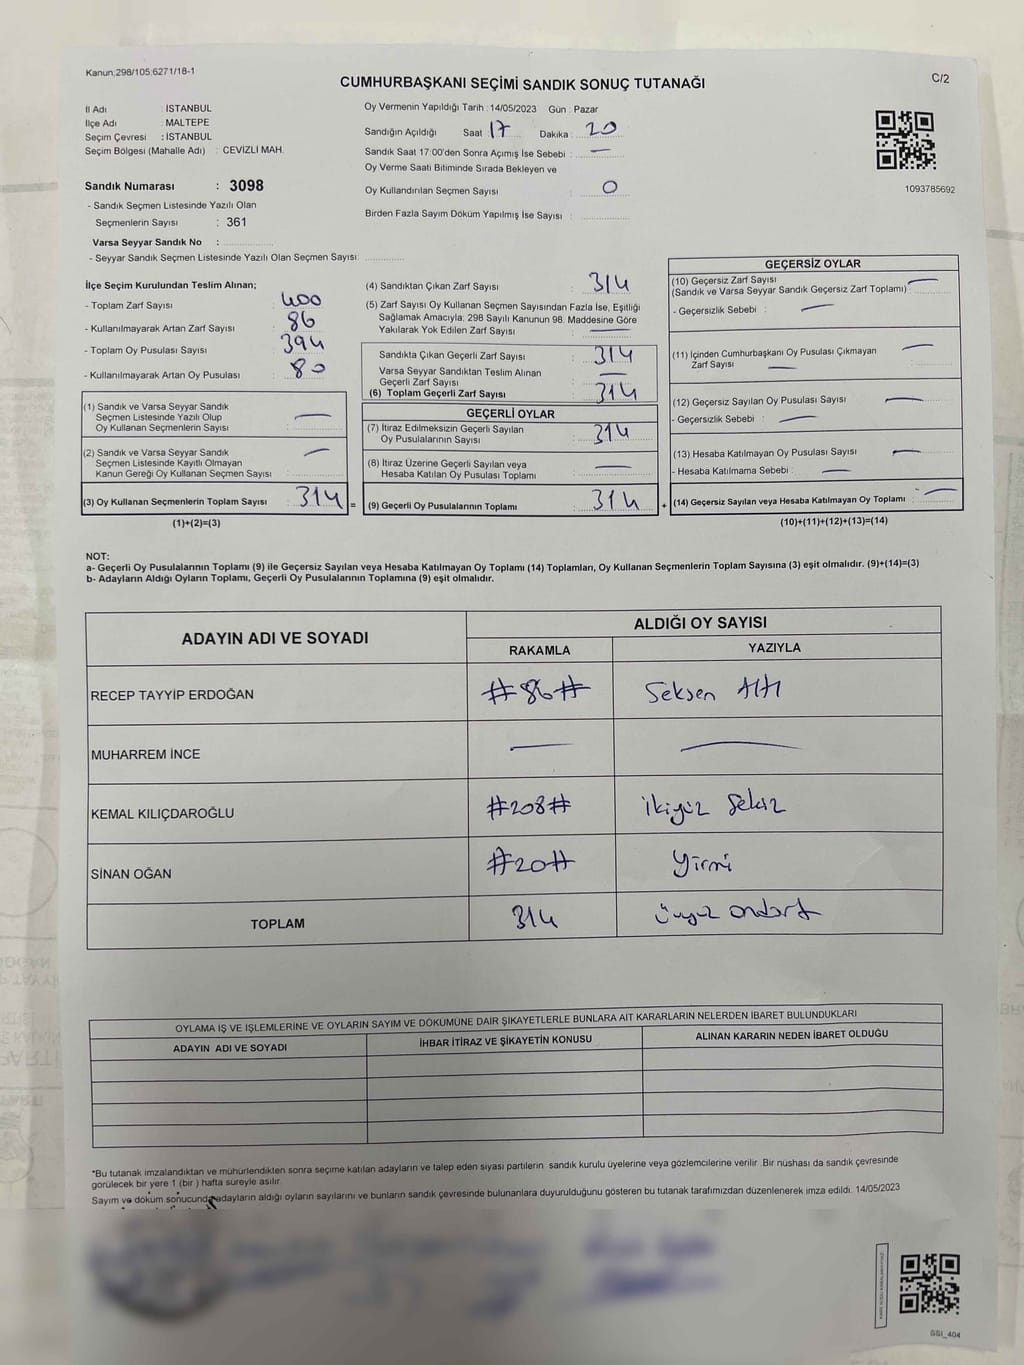 Kanun;298/105;6271/18-1
CUMHURBAŞKANI SEÇİMİ SANDIK SONUÇ TUTANAĞI
C/2
İl Adı : İSTANBUL
İlçe Adı : MALTEPE
Seçim Çevresi : İSTANBUL
Seçim Bölgesi (Mahalle Adı) : CEVİZLİ MAH.
Oy Vermenin Yapıldığı Tarih : 14/05/2023 Gün : Pazar
Sandığın Açıldığı Saat : 17 Dakika : 20
Sandık Saat 17:00'den Sonra Açımış İse Sebebi : —
Oy Verme Saati Bitiminde Sırada Bekleyen ve
Oy Kullandırılan Seçmen Sayısı : 0
Birden Fazla Sayım Döküm Yapılmış İse Sayısı :
1093785692
Sandık Numarası : 3098
- Sandık Seçmen Listesinde Yazılı Olan
Seçmenlerin Sayısı : 361
Varsa Seyyar Sandık No :
- Seyyar Sandık Seçmen Listesinde Yazılı Olan Seçmen Sayısı:
İlçe Seçim Kurulundan Teslim Alınan;
- Toplam Zarf Sayısı : 400
- Kullanılmayarak Artan Zarf Sayısı : 86
- Toplam Oy Pusulası Sayısı : 394
- Kullanılmayarak Artan Oy Pusulası : 80
(1) Sandık ve Varsa Seyyar Sandık
Seçmen Listesinde Yazılı Olup
Oy Kullanan Seçmenlerin Sayısı : —
(2) Sandık ve Varsa Seyyar Sandık
Seçmen Listesinde Kayıtlı Olmayan
Kanun Gereği Oy Kullanan Seçmen Sayısı : —
(3) Oy Kullanan Seçmenlerin Toplam Sayısı : 314 =
(1)+(2)=(3)
(4) Sandıktan Çıkan Zarf Sayısı : 314
(5) Zarf Sayısı Oy Kullanan Seçmen Sayısından Fazla İse, Eşitliği
Sağlamak Amacıyla; 298 Sayılı Kanunun 98. Maddesine Göre
Yakılarak Yok Edilen Zarf Sayısı : —
Sandıkta Çıkan Geçerli Zarf Sayısı : 314
Varsa Seyyar Sandıktan Teslim Alınan
Geçerli Zarf Sayısı : —
(6) Toplam Geçerli Zarf Sayısı : 314
GEÇERLİ OYLAR
(7) İtiraz Edilmeksizin Geçerli Sayılan
Oy Pusulalarının Sayısı : 314
(8) İtiraz Üzerine Geçerli Sayılan veya
Hesaba Katılan Oy Pusulası Toplamı : —
(9) Geçerli Oy Pusulalarının Toplamı : 314 +
GEÇERSİZ OYLAR
(10) Geçersiz Zarf Sayısı : —
(Sandık ve Varsa Seyyar Sandık Geçersiz Zarf Toplamı)
- Geçersizlik Sebebi : —
(11) İçinden Cumhurbaşkanı Oy Pusulası Çıkmayan : —
Zarf Sayısı —
(12) Geçersiz Sayılan Oy Pusulası Sayısı : —
- Geçersizlik Sebebi : —
(13) Hesaba Katılmayan Oy Pusulası Sayısı : —
- Hesaba Katılmama Sebebi : —
(14) Geçersiz Sayılan veya Hesaba Katılmayan Oy Toplamı : —
(10)+(11)+(12)+(13)=(14)
NOT:
a- Geçerli Oy Pusulalarının Toplamı (9) ile Geçersiz Sayılan veya Hesaba Katılmayan Oy Toplamı (14) Toplamları, Oy Kullanan Seçmenlerin Toplam Sayısına (3) eşit olmalıdır. (9)+(14)=(3)
b- Adayların Aldığı Oyların Toplamı, Geçerli Oy Pusulalarının Toplamına (9) eşit olmalıdır.
ADAYIN ADI VE SOYADI
ALDIĞI OY SAYISI
RAKAMLA YAZIYLA
RECEP TAYYİP ERDOĞAN #86# Seksen Altı
MUHARREM İNCE — —
KEMAL KILIÇDAROĞLU #208# ikiyüz sekiz
SİNAN OĞAN #20# yirmi
TOPLAM 314 üçyüz ondört
OYLAMA İŞ VE İŞLEMLERİNE VE OYLARIN SAYIM VE DÖKÜMÜNE DAİR ŞİKAYETLERLE BUNLARA AİT KARARLARIN NELERDEN İBARET BULUNDUKLARI
ADAYIN ADI VE SOYADI İHBAR İTİRAZ VE ŞİKAYETİN KONUSU ALINAN KARARIN NEDEN İBARET OLDUĞU
*Bu tutanak imzalandıktan ve mühürlendikten sonra seçime katılan adayların ve talep eden siyasi partilerin sandık kurulu üyelerine veya gözlemcilerine verilir .Bir nüshası da sandık çevresinde
görülecek bir yere 1 (bir ) hafta süreyle asılır.
Sayım ve döküm sonucunda adayların aldığı oyların sayılarını ve bunların sandık çevresinde bulunanlara duyurulduğunu gösteren bu tutanak tarafımızdan düzenlenerek imza edildi. 14/05/2023
SSI_404